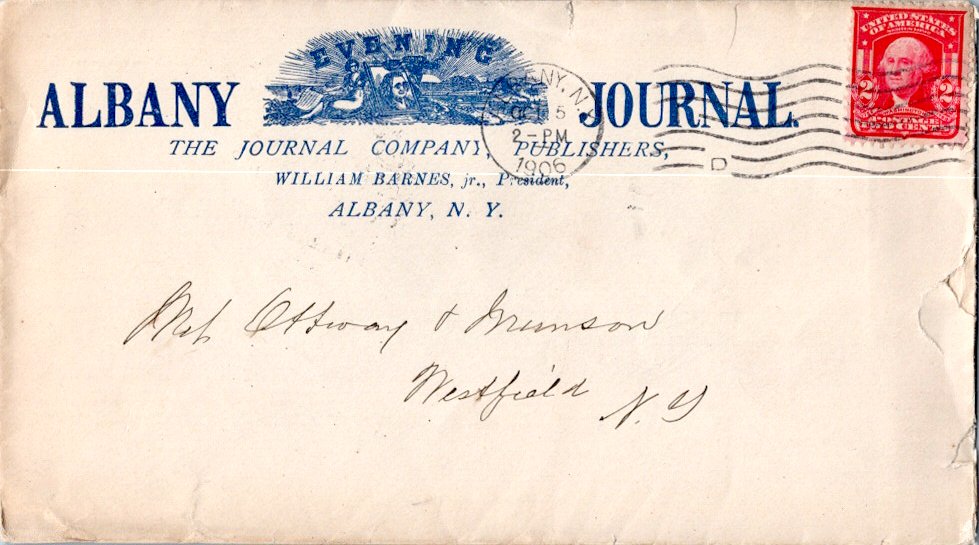 EVENING
ALBANY JOURNAL.
THE JOURNAL COMPANY, PUBLISHERS,
WILLIAM BARNES, jr., President,
ALBANY, N. Y.
ALBANY, N.Y.
OCT 5
2-PM
1906
D
UNITED STATES
OF AMERICA
2 2
POSTAGE
TWO CENTS
Ottway & Munson
Westfield N. Y